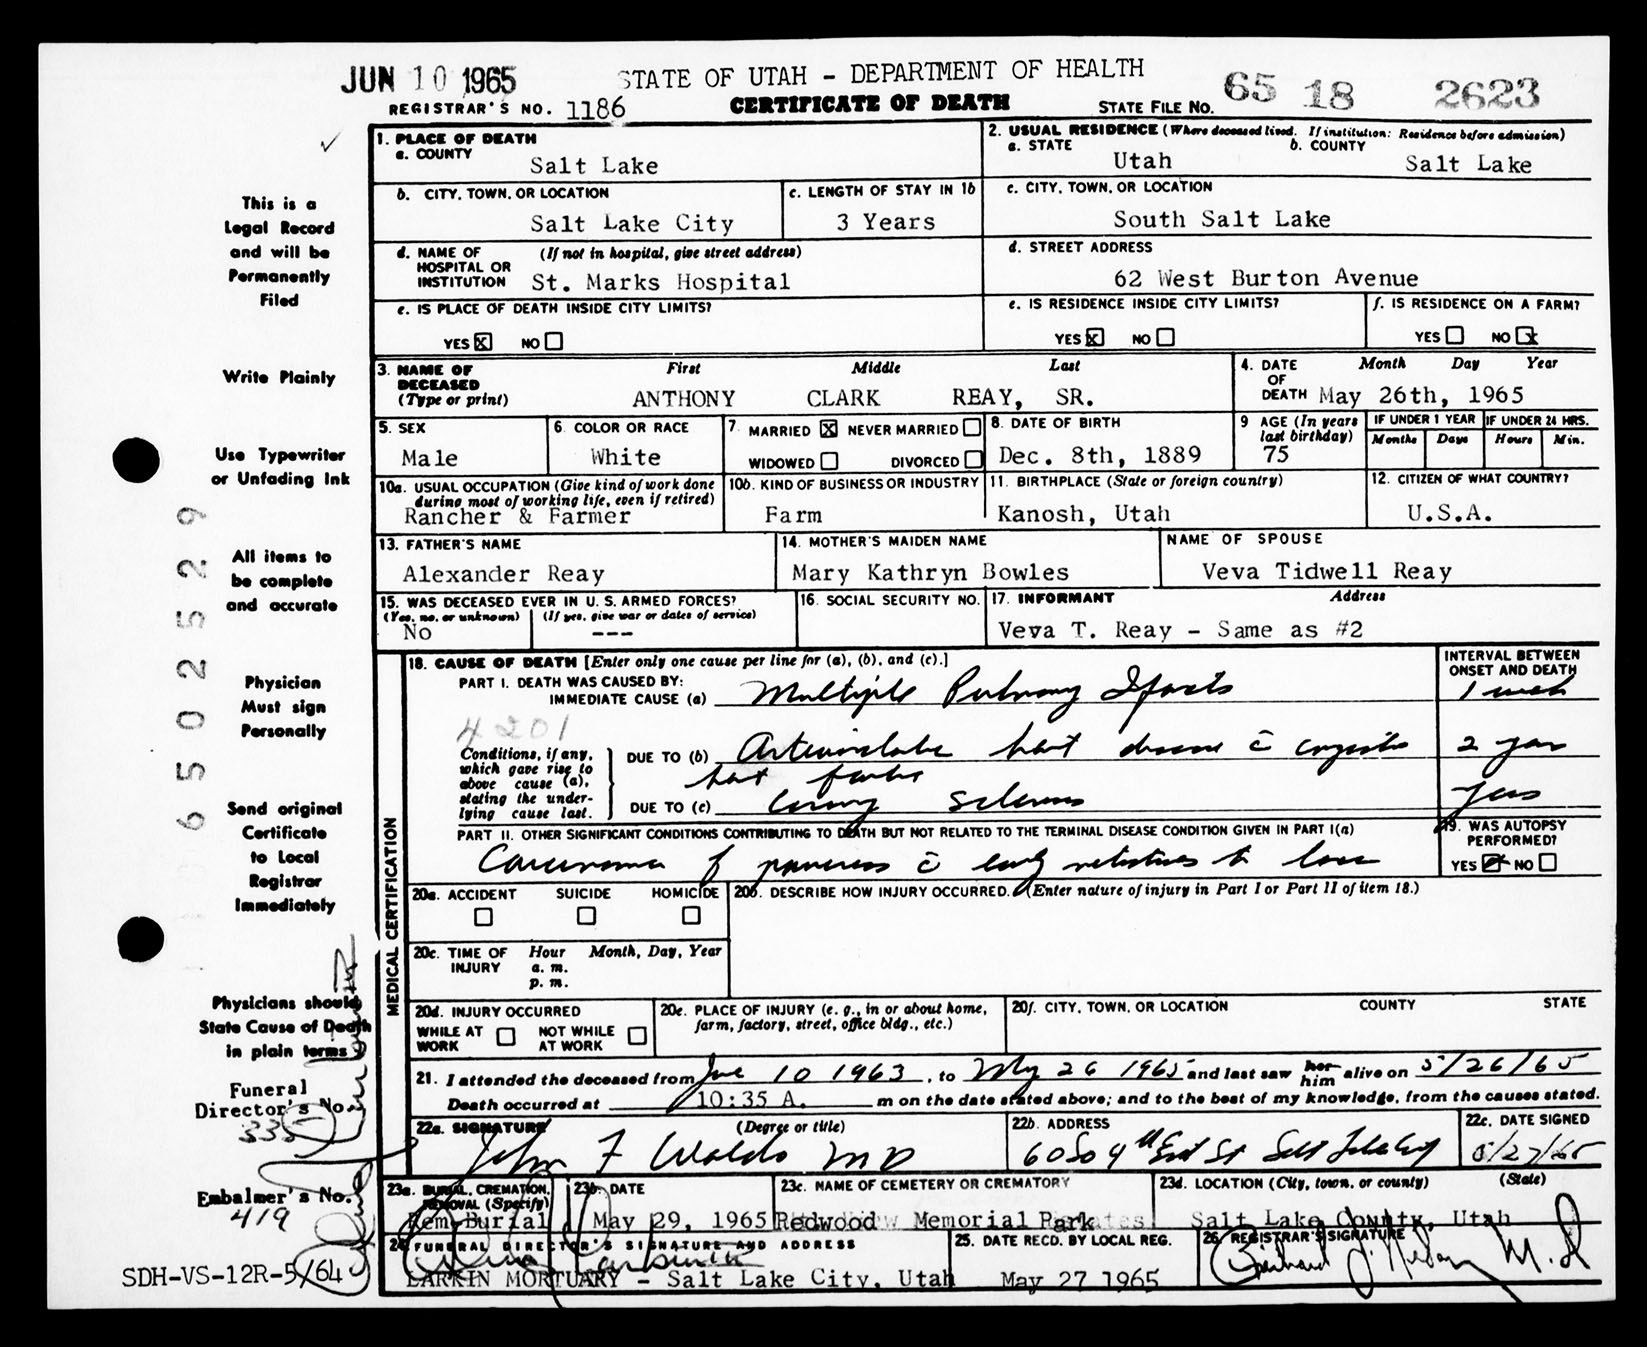 JUN 10 1965 STATE OF UTAH - DEPARTMENT OF HEALTH 65 18 2623
REGISTRAR'S NO. 1186 CERTIFICATE OF DEATH STATE FILE NO.
This is a
Legal Record
and will be
Permanently
Filed
Write Plainly
Use Typewriter
or Unfading Ink
All items to
be complete
and accurate
Physician
Must sign
Personally
Send original
Certificate
to Local
Registrar
Immediately
Physicians should
State Cause of Death
in plain terms
Funeral
Director's No.
335
Embalmer's No.
419
SDH-VS-12R-5/64
65025529
1. PLACE OF DEATH
a. COUNTY
Salt Lake
2. USUAL RESIDENCE (Where deceased lived. If institution: Residence before admission)
a. STATE b. COUNTY
Utah Salt Lake
b. CITY, TOWN, OR LOCATION
Salt Lake City
c. LENGTH OF STAY IN 1b
3 Years
c. CITY, TOWN, OR LOCATION
South Salt Lake
d. NAME OF (If not in hospital, give street address)
HOSPITAL OR
INSTITUTION St. Marks Hospital
d. STREET ADDRESS
62 West Burton Avenue
e. IS PLACE OF DEATH INSIDE CITY LIMITS?
YES X NO
e. IS RESIDENCE INSIDE CITY LIMITS?
YES X NO
f. IS RESIDENCE ON A FARM?
YES NO X
3. NAME OF First Middle Last
DECEASED
(Type or print) ANTHONY CLARK REAY, SR.
4. DATE Month Day Year
OF
DEATH May 26th, 1965
5. SEX
Male
6. COLOR OR RACE
White
7. MARRIED X NEVER MARRIED
WIDOWED DIVORCED
8. DATE OF BIRTH
Dec. 8th, 1889
9 AGE (In years
last birthday)
75
IF UNDER 1 YEAR IF UNDER 24 HRS.
Months Days Hours Min.
10a. USUAL OCCUPATION (Give kind of work done
during most of working life, even if retired)
Rancher & Farmer
10b. KIND OF BUSINESS OR INDUSTRY
Farm
11. BIRTHPLACE (State or foreign country)
Kanosh, Utah
12. CITIZEN OF WHAT COUNTRY?
U.S.A.
13. FATHER'S NAME
Alexander Reay
14. MOTHER'S MAIDEN NAME
Mary Kathryn Bowles
NAME OF SPOUSE
Veva Tidwell Reay
15. WAS DECEASED EVER IN U. S. ARMED FORCES?
(Yes, no, or unknown) (If yes, give war or dates of service)
No ---
16. SOCIAL SECURITY NO.
17. INFORMANT Address
Veva T. Reay - Same as #2
MEDICAL CERTIFICATION
18. CAUSE OF DEATH [Enter only one cause per line for (a), (b), and (c).]
INTERVAL BETWEEN
ONSET AND DEATH
PART I. DEATH WAS CAUSED BY:
IMMEDIATE CAUSE (a) Multiple Pulmonary Infarcts 1 week
4201
Conditions, if any,
which gave rise to
above cause (a),
stating the under-
lying cause last.
DUE TO (b) Arteriosclerotic heart disease c̄ congestive 2 years
heart failure
DUE TO (c) Coronary Sclerosis years
PART II. OTHER SIGNIFICANT CONDITIONS CONTRIBUTING TO DEATH BUT NOT RELATED TO THE TERMINAL DISEASE CONDITION GIVEN IN PART I(a)
Carcinoma of pancreas c̄ early metastases to
19. WAS AUTOPSY
PERFORMED?
YES NO
20a. ACCIDENT SUICIDE HOMICIDE
20b. DESCRIBE HOW INJURY OCCURRED. (Enter nature of injury in Part I or Part II of item 18.)
20c. TIME OF Hour Month, Day, Year
INJURY a. m.
p. m.
20d. INJURY OCCURRED
WHILE AT WORK NOT WHILE AT WORK
20e. PLACE OF INJURY (e. g., in or about home,
farm, factory, street, office bldg., etc.)
20f. CITY, TOWN, OR LOCATION COUNTY STATE
21. I attended the deceased from June 10 1963, to May 26 1965 and last saw her him alive on 5/26/65
Death occurred at 10:35 A. m on the date stated above; and to the best of my knowledge, from the causes stated.
22a. SIGNATURE (Degree or title)
John F Waldo MD
22b. ADDRESS
60 So 4th East St Salt Lake City
22c. DATE SIGNED
5/27/65
23a. BURIAL, CREMATION,
REMOVAL (Specify)
Rem-Burial
23b. DATE
May 29, 1965
23c. NAME OF CEMETERY OR CREMATORY
Redwood Memorial Park
23d. LOCATION (City, town, or county) (State)
Salt Lake County, Utah
24 FUNERAL DIRECTOR'S SIGNATURE AND ADDRESS
LARKIN MORTUARY - Salt Lake City, Utah
25. DATE RECD. BY LOCAL REG.
May 27 1965
26 REGISTRAR'S SIGNATURE
M.D